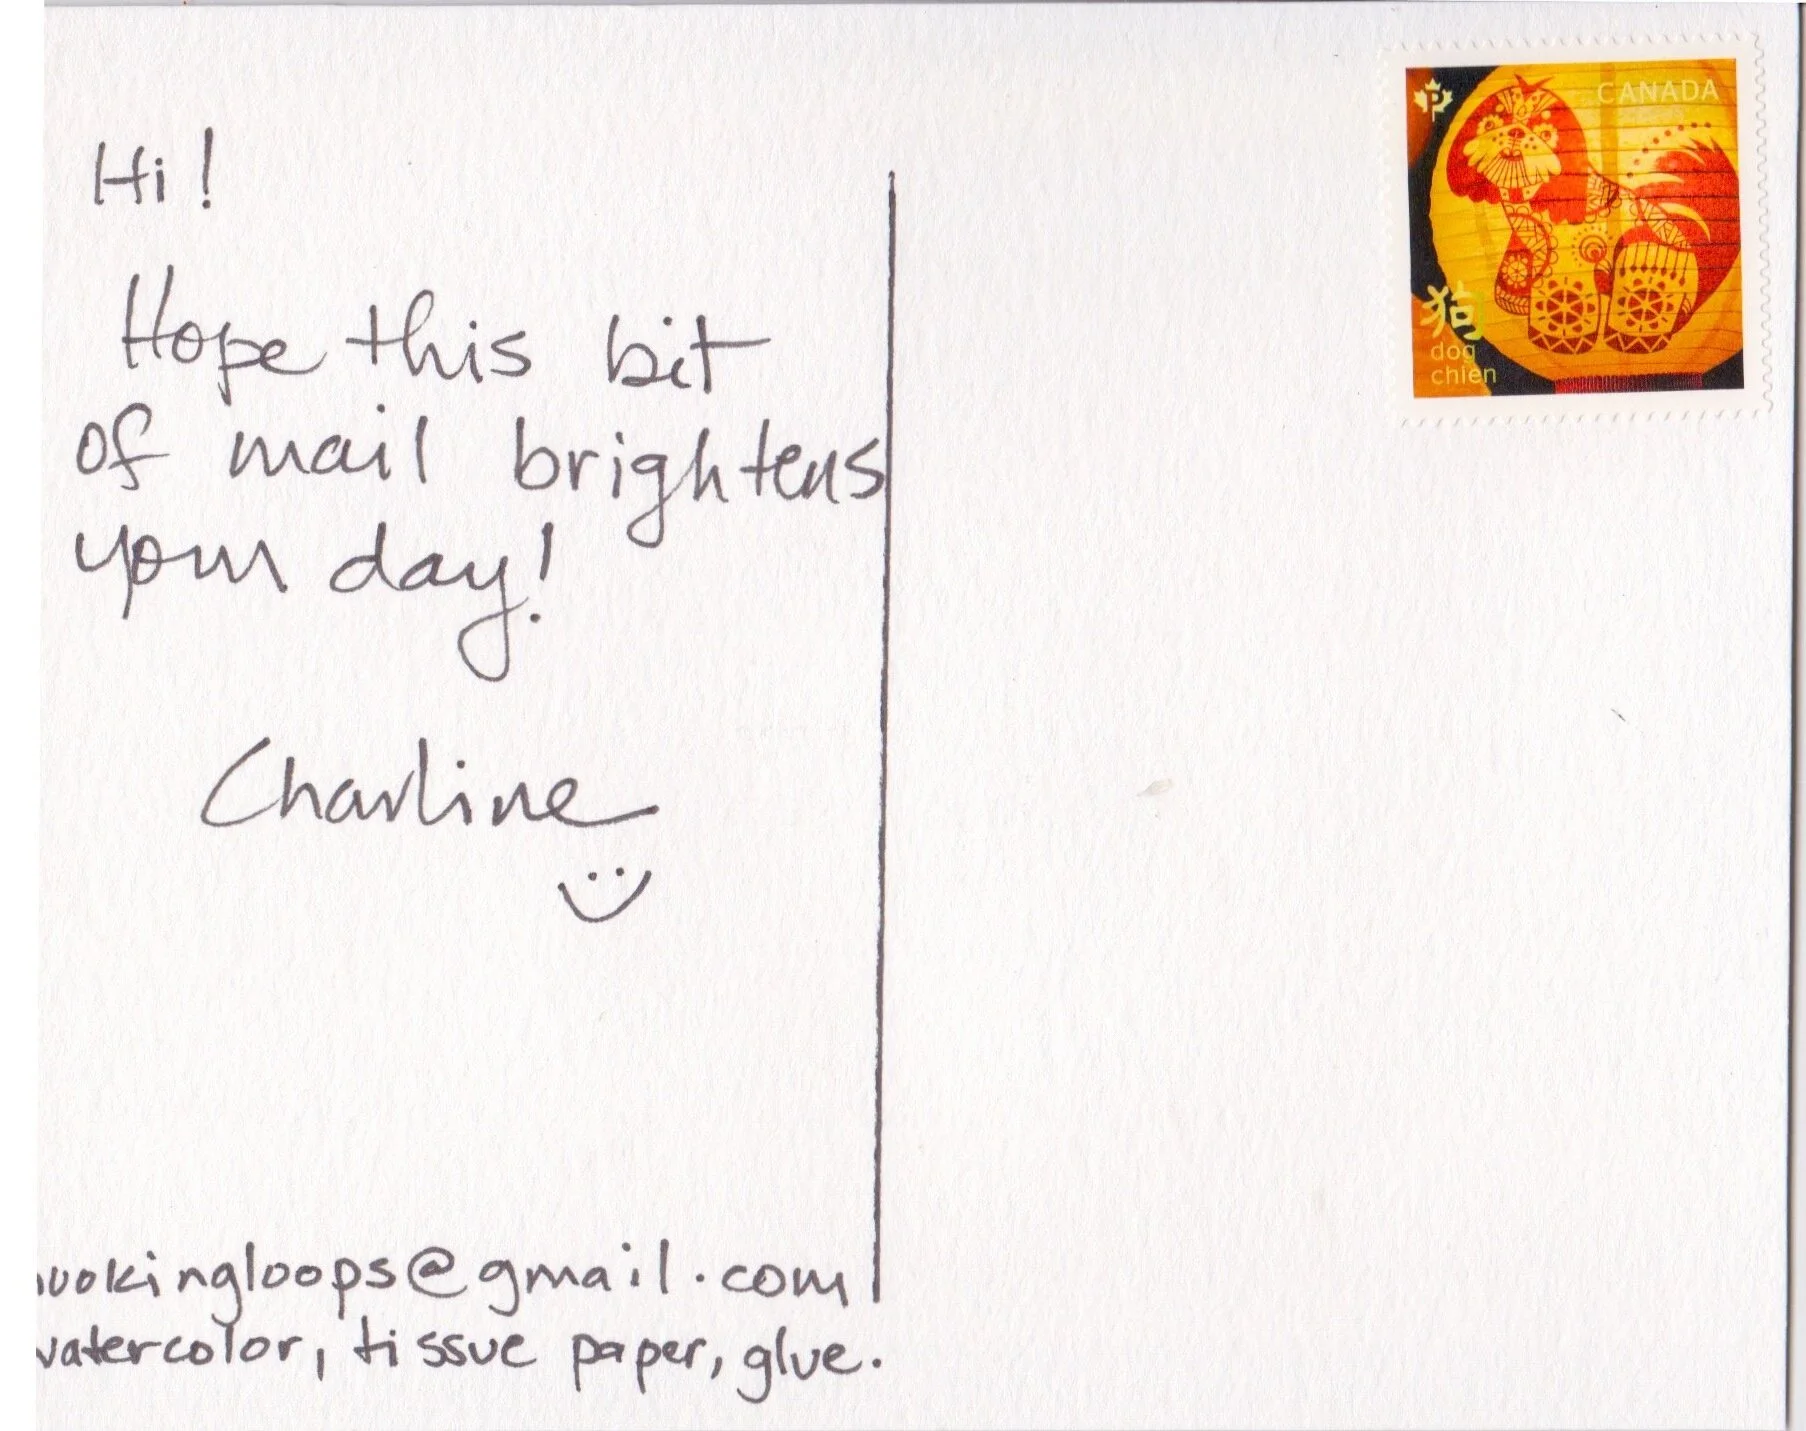 Hi!
Hope this bit
of mail brightens
your day!
Charline
hookingloops@gmail.com
watercolor, tissue paper, glue.
P
CANADA
狗
dog
chien